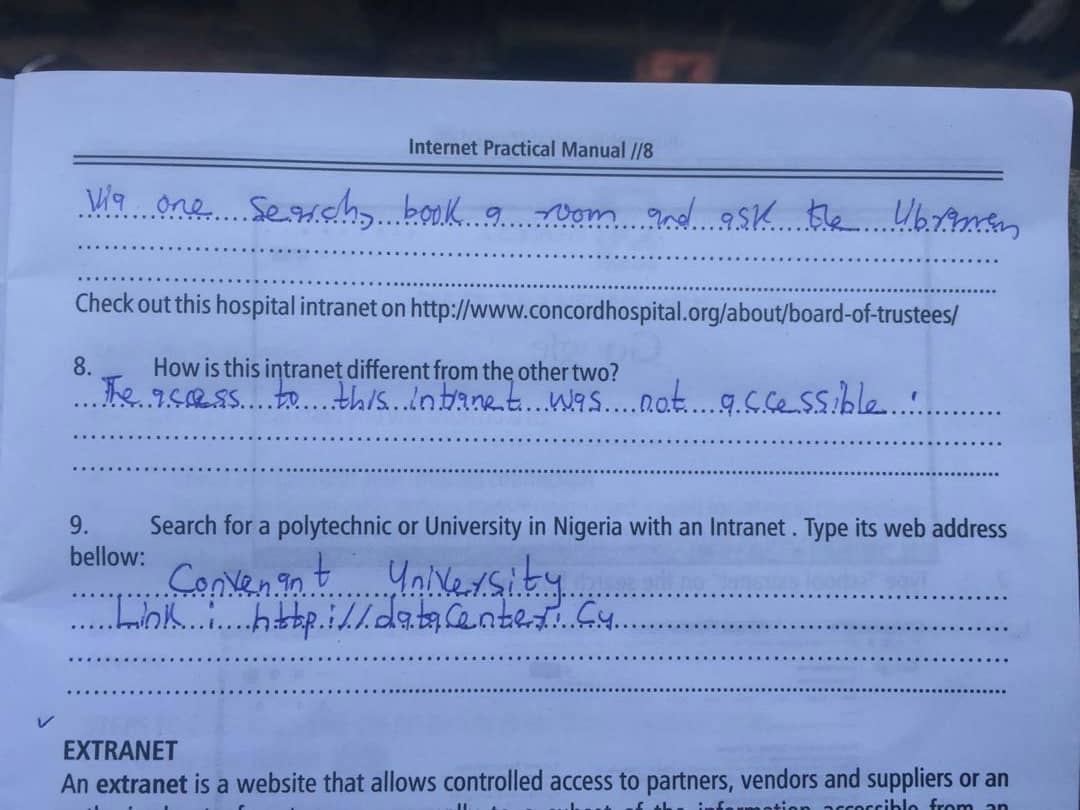 Internet Practical Manual //8
Via one search, book a room and ask the
Check out this hospital intranet on http://www.concordhospital.org/about/board-of-trustees/
8. How is this intranet different from the other two?
The access to this intranet was not accessible.
9. Search for a polytechnic or University in Nigeria with an Intranet . Type its web address
bellow:
Convenant University
Link : http://datacenter.Cu
EXTRANET
An extranet is a website that allows controlled access to partners, vendors and suppliers or an
subset of the information accessible from an